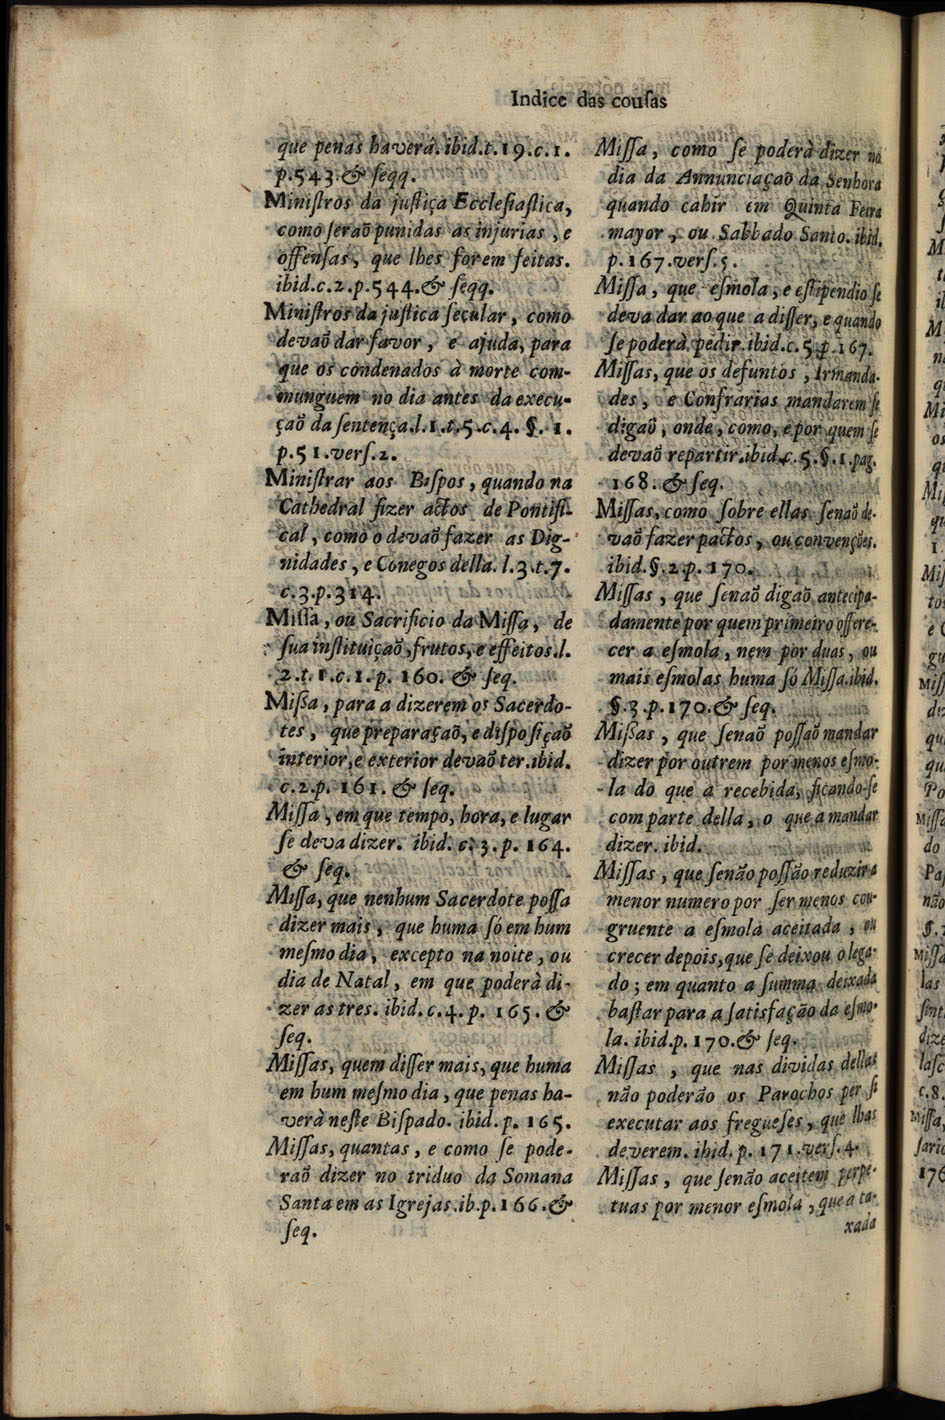 Indice das couſas
que penas haverá. ibid.t.19.c.1.
p.543.& ſeqq.
Miniſtros da juſtiça Eccleſiaſtica,
como ſeraõ punidas as injurias, e
offenſas, que lhes forem feitas.
ibid.c.2.p.544.& ſeqq.
Miniſtros da juſtica ſecular, como
devaõ dar favor, e ajuda, para
que os condenados à morte com-
munguem no dia antes da execu-
çaõ da ſentença.l.1.t.5.c.4. §. 1.
p.51.verſ.2.
Miniſtrar aos Biſpos, quando na
Cathedral fizer actos de Pontifi-
cal, como o devaõ fazer as Dig-
nidades, e Conegos della. l.3.t.7.
c.3.p.314.
Miſſa, ou Sacrificio da Miſſa, de
ſua inſtituiçaõ, frutos, e effeitos.l.
2.t.1.c.1.p. 160. & ſeq.
Miſsa, para a dizerem os Sacerdo-
tes, que preparaçaõ, e diſpoſiçaõ
interior, e exterior devaõ ter.ibid.
c.2.p. 161. & ſeq.
Miſſa, em que tempo, hora, e lugar
ſe deva dizer. ibid. c. 3. p. 164.
& ſeq.
Miſſa, que nenhum Sacerdote poſſa
dizer mais, que huma ſó em hum
meſmo dia, excepto na noite, ou
dia de Natal, em que poderà di-
zer as tres. ibid. c.4. p. 165. &
ſeq.
Miſſas, quem diſſer mais, que huma
em hum meſmo dia, que penas ha-
verà neſte Biſpado. ibid. p. 165.
Miſſas, quantas, e como ſe pode-
raõ dizer no triduo da Somana
Santa em as Igrejas.ib.p.166.&
ſeq.
Miſſa, como ſe poderà dizer no
dia da Annunciaçaõ da Senhora
quando cahir em Quinta Feira
mayor, ou Sabbado Santo. ibid.
p.167.verſ.5.
Miſſa, que eſmola, e eſtipendio ſe
deva dar ao que a diſſer, e quando
ſe poderà pedir.ibid.c.5.p.167.
Miſſas, que os defuntos, Irmanda-
des, e Confrarias mandarem ſe
digaõ, onde, como, e por quem ſe
devaõ repartir.ibid.c.5.§.1.pag.
168. & ſeq.
Miſſas, como ſobre ellas ſenaõ de-
vaõ fazer pactos, ou convenções.
ibid.§.2.p.170.
Miſſas, que ſenaõ digaõ antecipa-
damente por quem primeiro offere-
cer a eſmola, nem por duas, ou
mais eſmolas huma ſó Miſſa.ibid.
§.3.p.170.& ſeq.
Miſsas, que ſenaõ poſſaõ mandar
dizer por outrem por menos eſmo-
la do que a recebida, ficando-ſe
com parte della, o que a mandar
dizer. ibid.
Miſſas, que ſenão poſſão reduzir a
menor numero por ſer menos con-
gruente a eſmola aceitada, ou
crecer depois, que ſe deixou o lega-
do; em quanto a ſumma deixada
baſtar para a ſatisfação da eſmo-
la. ibid.p.170.& ſeq.
Miſſas, que nas dividas dellas
não poderão os Parochos per ſi
executar aos fregueſes, que lhas
deverem. ibid. p. 171.verſ.4.
Miſſas, que ſenão aceitem perpe-
tuas por menor eſmola, que a ta-
xada